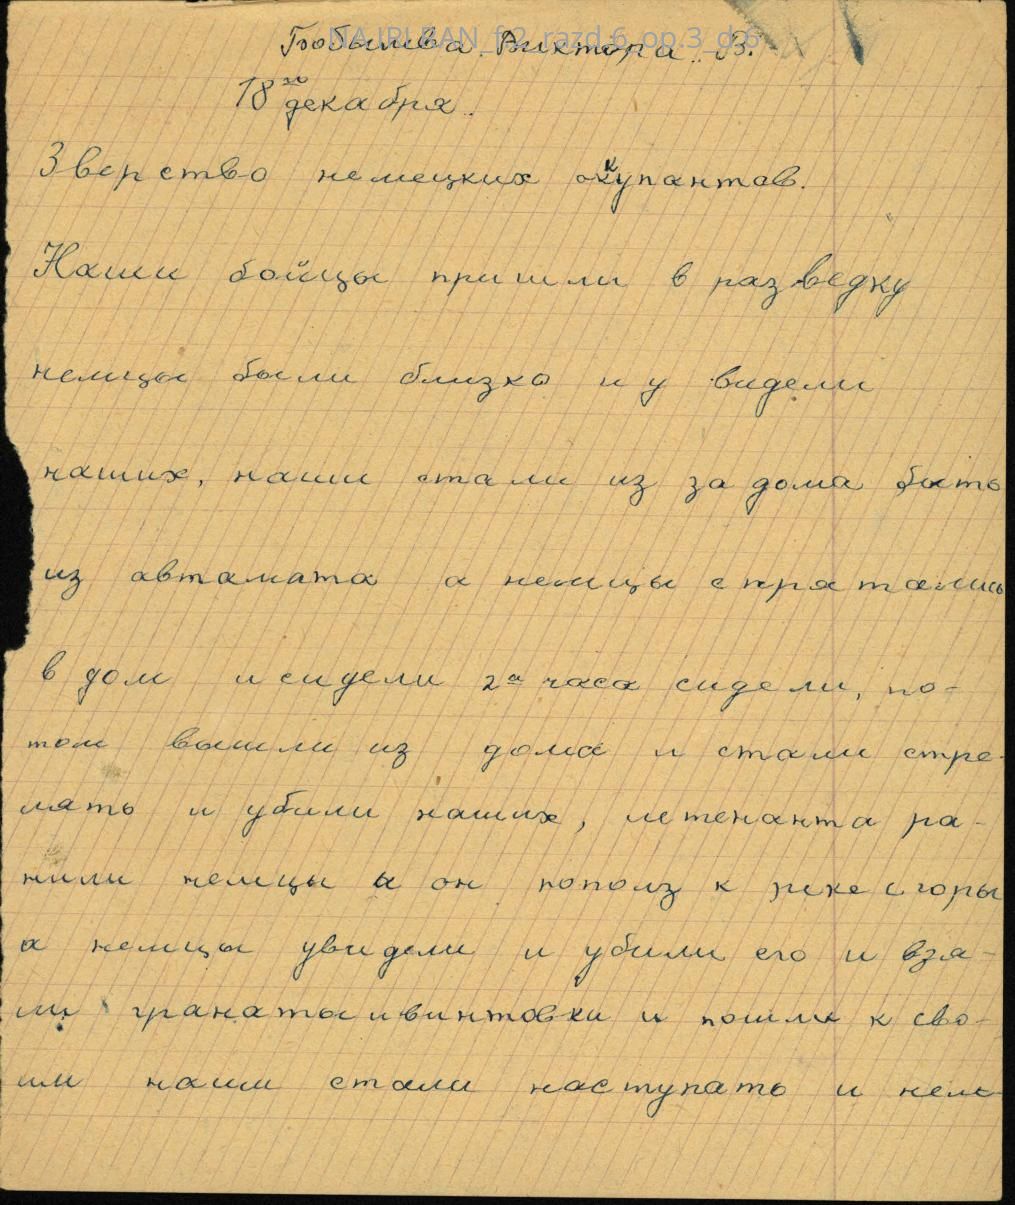 NA IRI RAN_f.2_razd.6_op.3_d.6
Бобылева Виктора. В.
18го декабря.
Зверство немецких оккупантов.
Наши бойцы пришли в разведку
немцы были близко и у видели
наших, наши стали из за дома бить
из автамата а немцы спрятались
в дом и сидели 2а часа сидели, по-
том вышли из дома и стали стре-
лять и убили наших, летенанта ра-
нили немцы а он пополз к реке с горы
а немцы увидели и убили его и взя-
ли гранаты и винтовки и пошли к сво-
им наши стали наступать и нем-